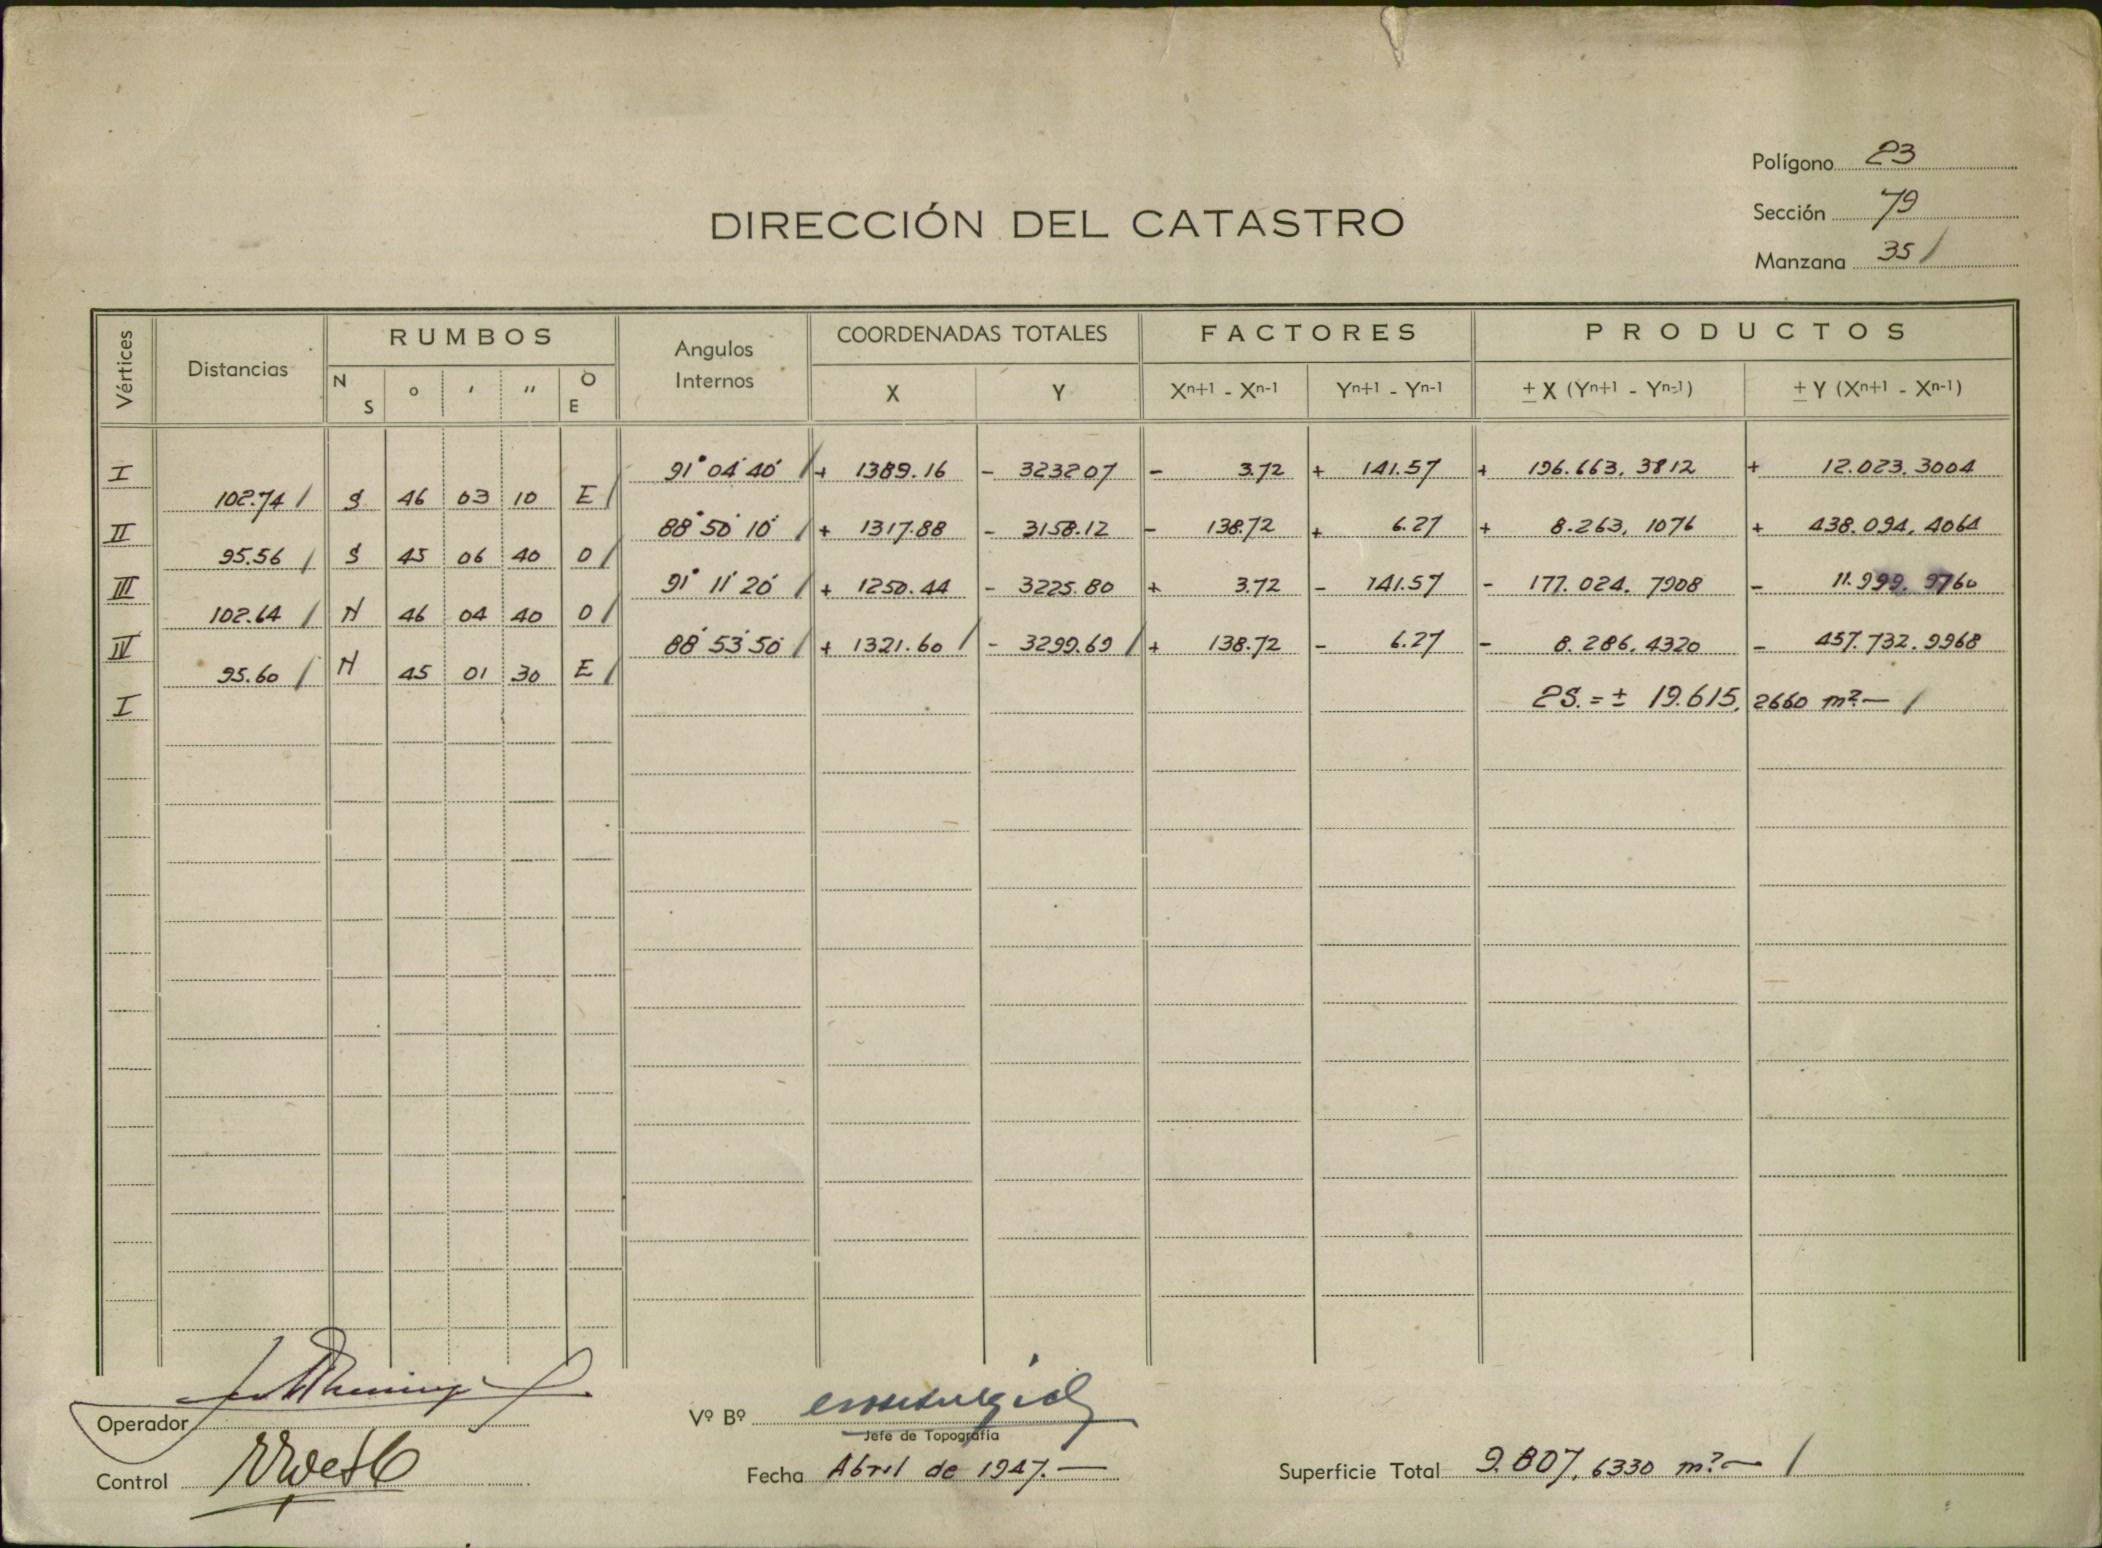 Polígono 23
Sección 79
Manzana 35 /
DIRECCIÓN DEL CATASTRO
Vértices Distancias RUMBOS Angulos Internos COORDENADAS TOTALES FACTORES PRODUCTOS
N S ° ' " O E X Y Xn+1 - Xn-1 Yn+1 - Yn-1 ± X (Yn+1 - Yn-1) ± Y (Xn+1 - Xn-1)
I 91° 04' 40" / + 1389.16 - 323207 - 3.72 + 141.57 + 196.663,3812 + 12.023.3004
102.74 / S 46 03 10 E /
II 88° 50' 10" / + 1317.88 - 3158.12 - 138.72 + 6.27 + 8.263,1076 + 438.094,4064
95.56 / S 45 06 40 O /
III 91° 11' 20" / + 1250.44 - 3225.80 + 3.72 - 141.57 - 177.024,7908 - 11.999.9760
102.64 / N 46 04 40 O /
IV 88° 53' 50" / + 1321.60 / - 3299.69 / + 138.72 - 6.27 - 8.286,4320 - 457.732.9968
95.60 / N 45 01 30 E /
I 2S. = ± 19.615,2660 m² — /
Operador
Vº Bº
Jefe de Topografía
Control
Fecha Abril de 1947. —
Superficie Total 9.807,6330 m² — /